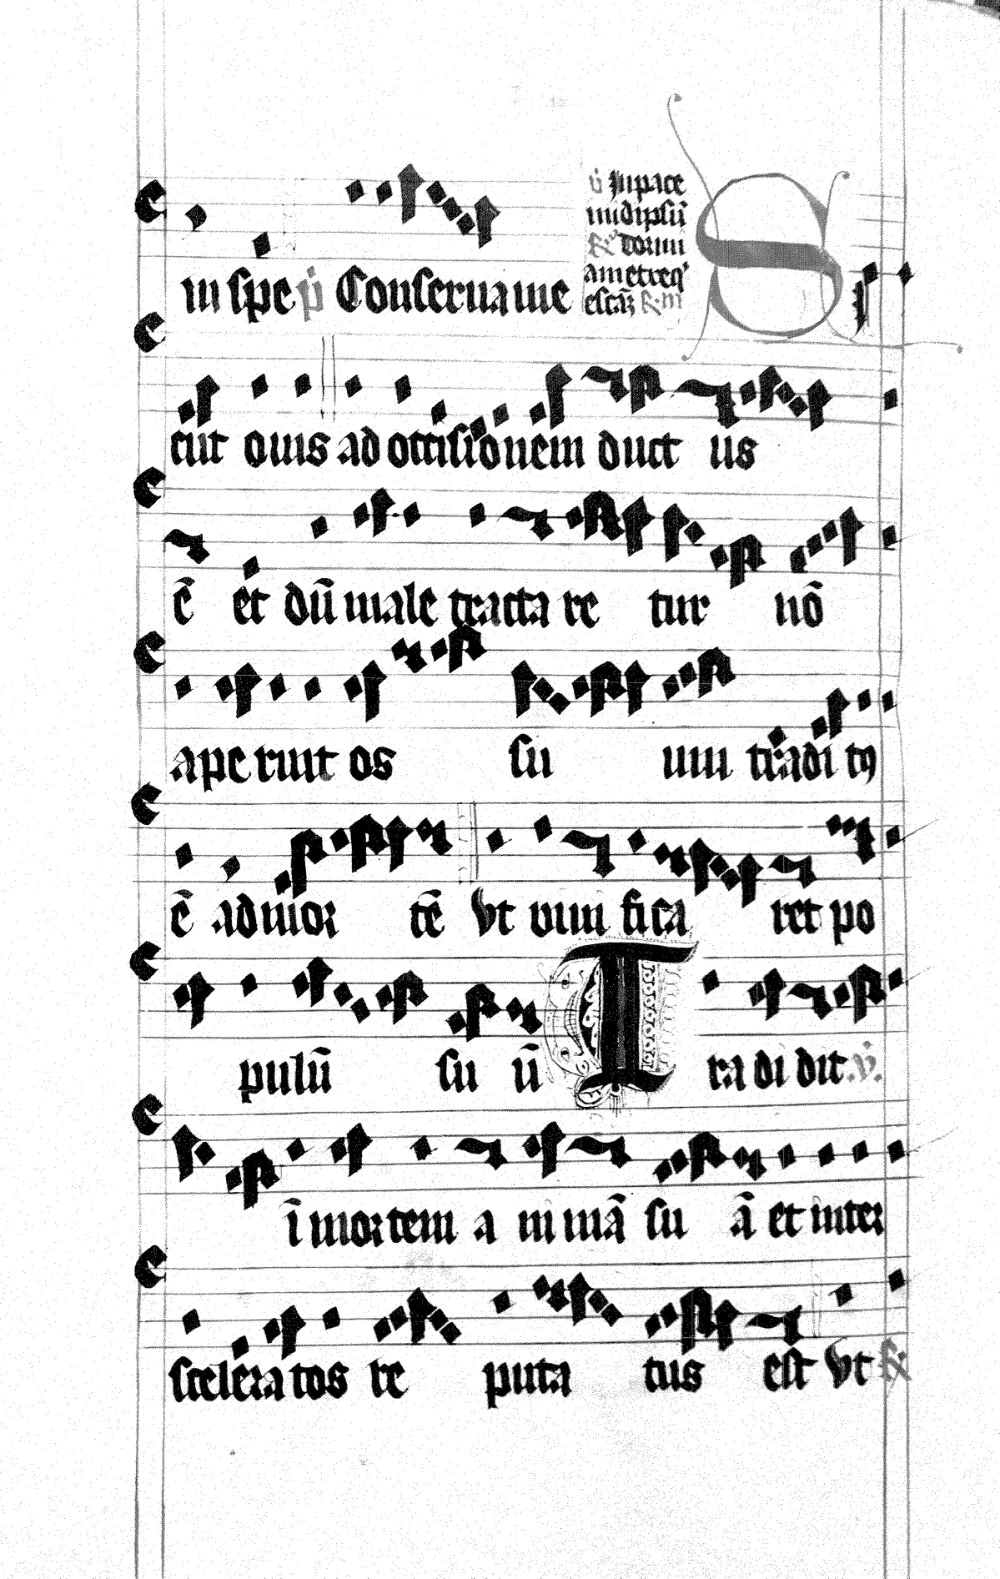 in spe p̄ Conserua me
v̄ In pace
in idipsū
℟ dormi
am et req
escā℟ ℟ in
S
cut ouis ad occisionem duct us
ē et dū male tracta re tur nō
ape ruit os su um tradi tꝰ
ē ad mor tē vt viui fica ret po
pulū su ū T ra di dit v̄.
ī mortem a ni mā su ā et inter
scelera tos re puta tus est vt ℟